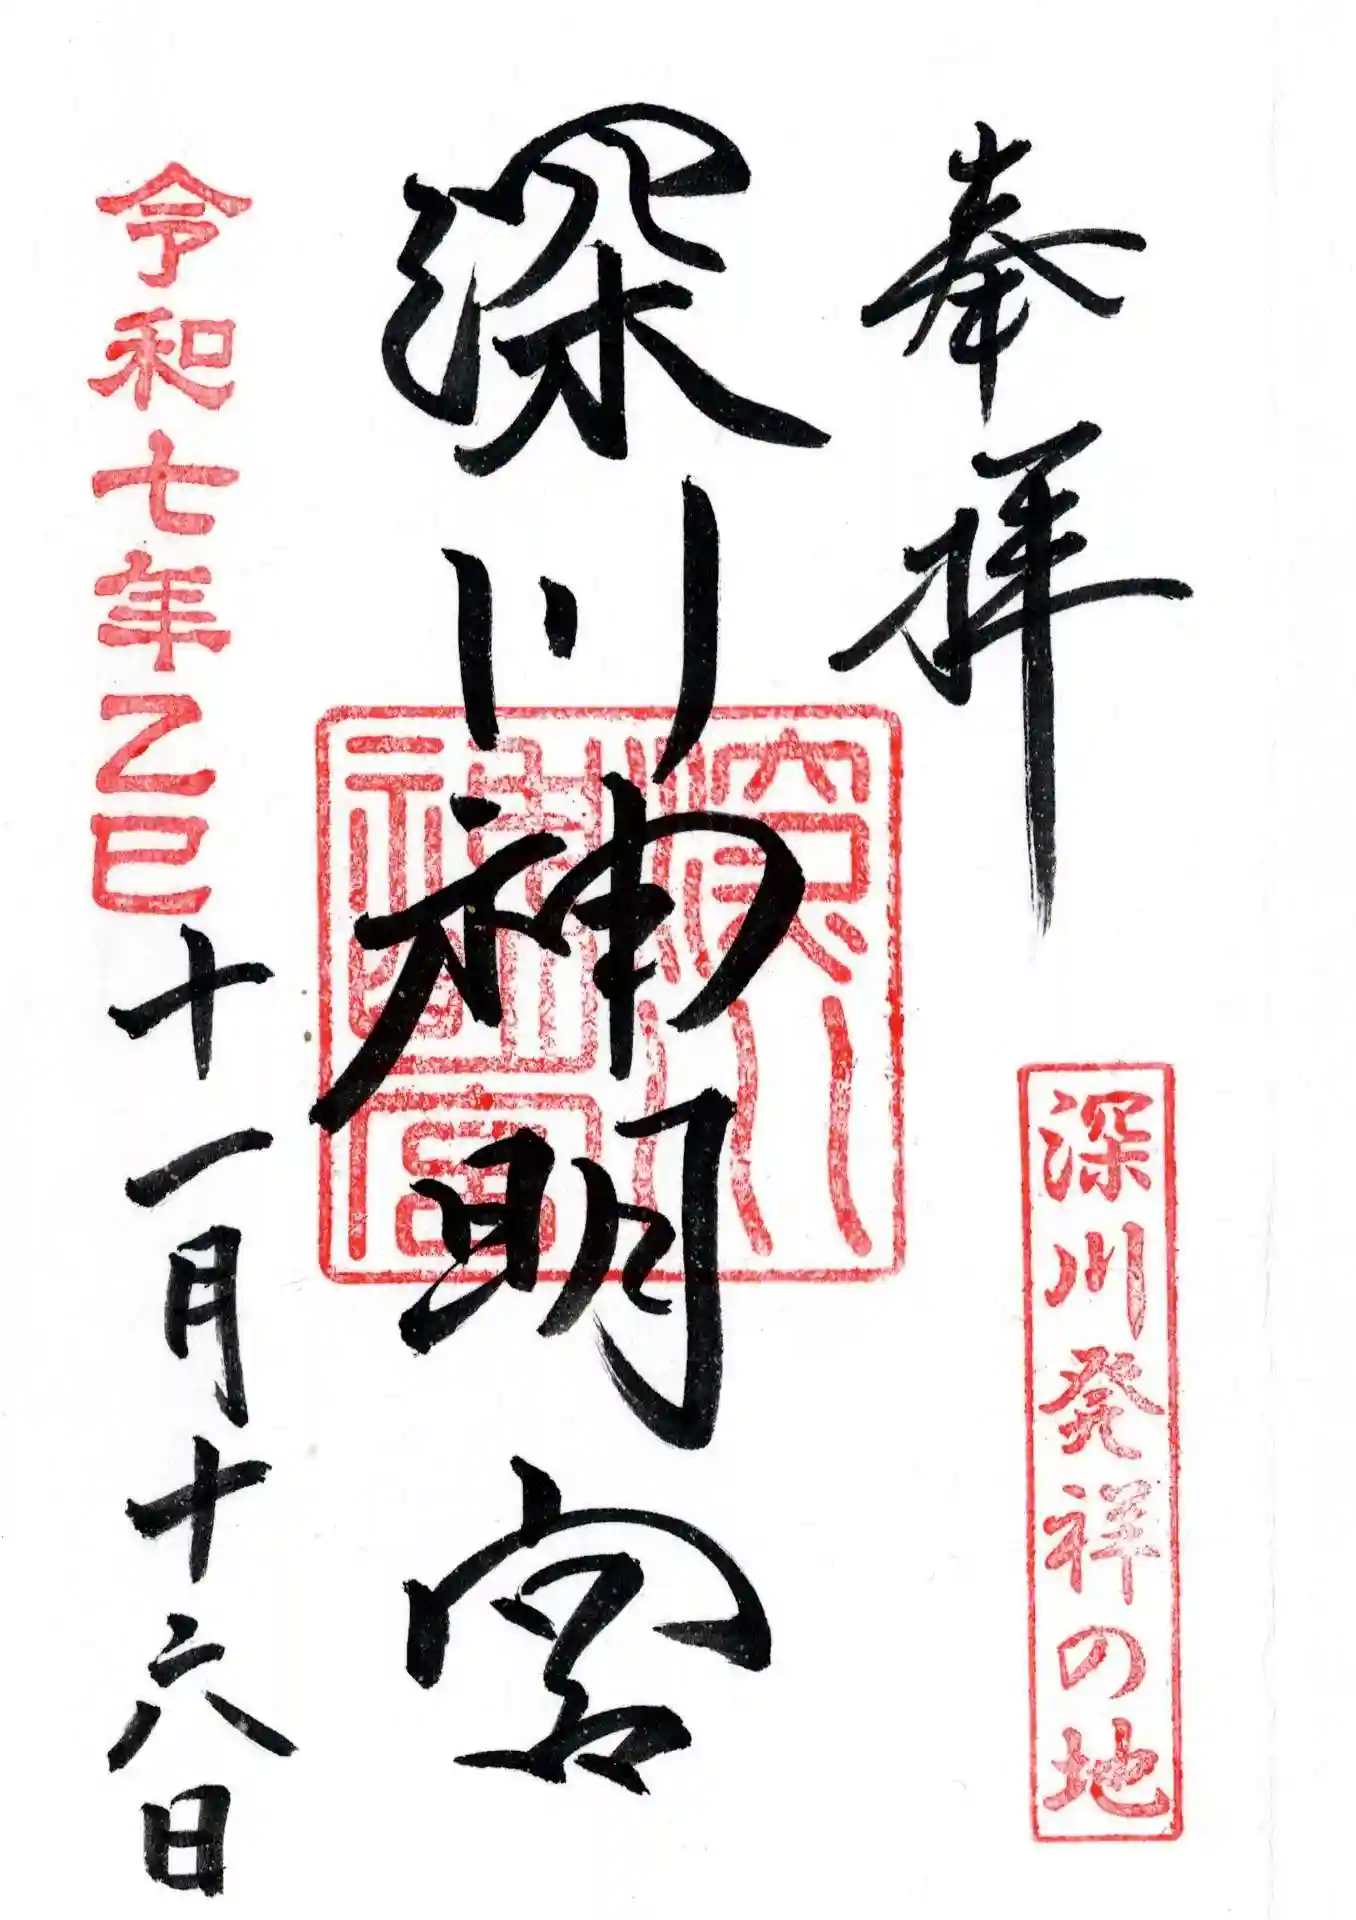 奉拝
深川発祥の地
深川神明宮
深川神明宮
令和七年乙巳十一月十六日